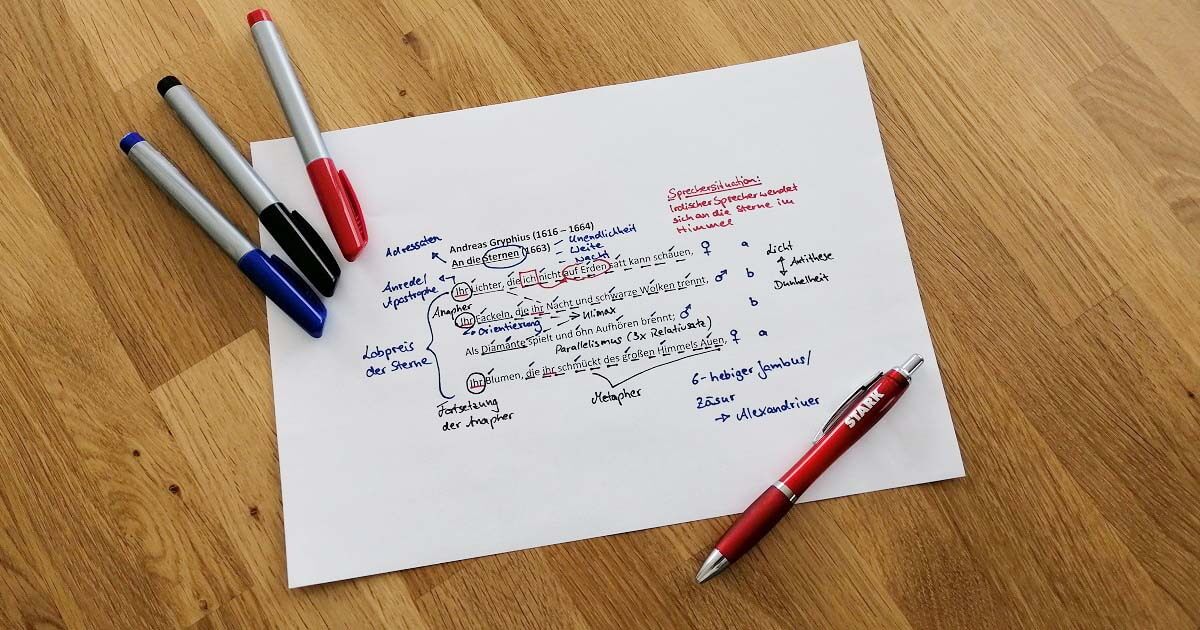 Sprechersituation:
Irdischer Sprecher wendet
sich an die Sterne im
Himmel
Adressaten
Andreas Gryphius (1616 – 1664)
An die Sternen (1663)
– Unendlichkeit
– Weite
– Nacht
Anrede/
Apostrophe
Ihr Lichter, die ich nicht auf Erden satt kann schauen, ♀ a
Licht
Antithese
Dunkelheit
Anapher
Ihr Fackeln, die ihr Nacht und schwarze Wolken trennt, ♂ b
Orientierung
Klimax
Als Diamante spielt und ohn Aufhören brennt; ♂ b
Parallelismus (3x Relativsatz)
Lobpreis
der Sterne
Ihr Blumen, die ihr schmückt des großen Himmels Auen, ♀ a
Fortsetzung
der Anapher
Metapher
6-hebiger Jambus/
Zäsur
→ Alexandriner
STARK